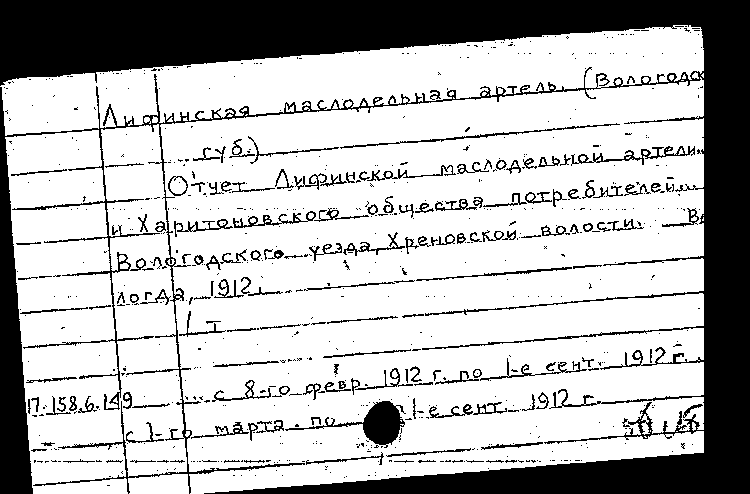 Лифинская маслодельная артель. (Вологодск
губ.)
Отчет Лифинской маслодельной артели...
и Харитоновского общества потребителей...
Вологодского уезда, Хреновской волости. Во
логда, 1912.
1 т
17.158.6.149 ... с 8-го февр. 1912 г. по 1-е сент. 1912 г.
с 1-го марта по 1-е сент. 1912 г.